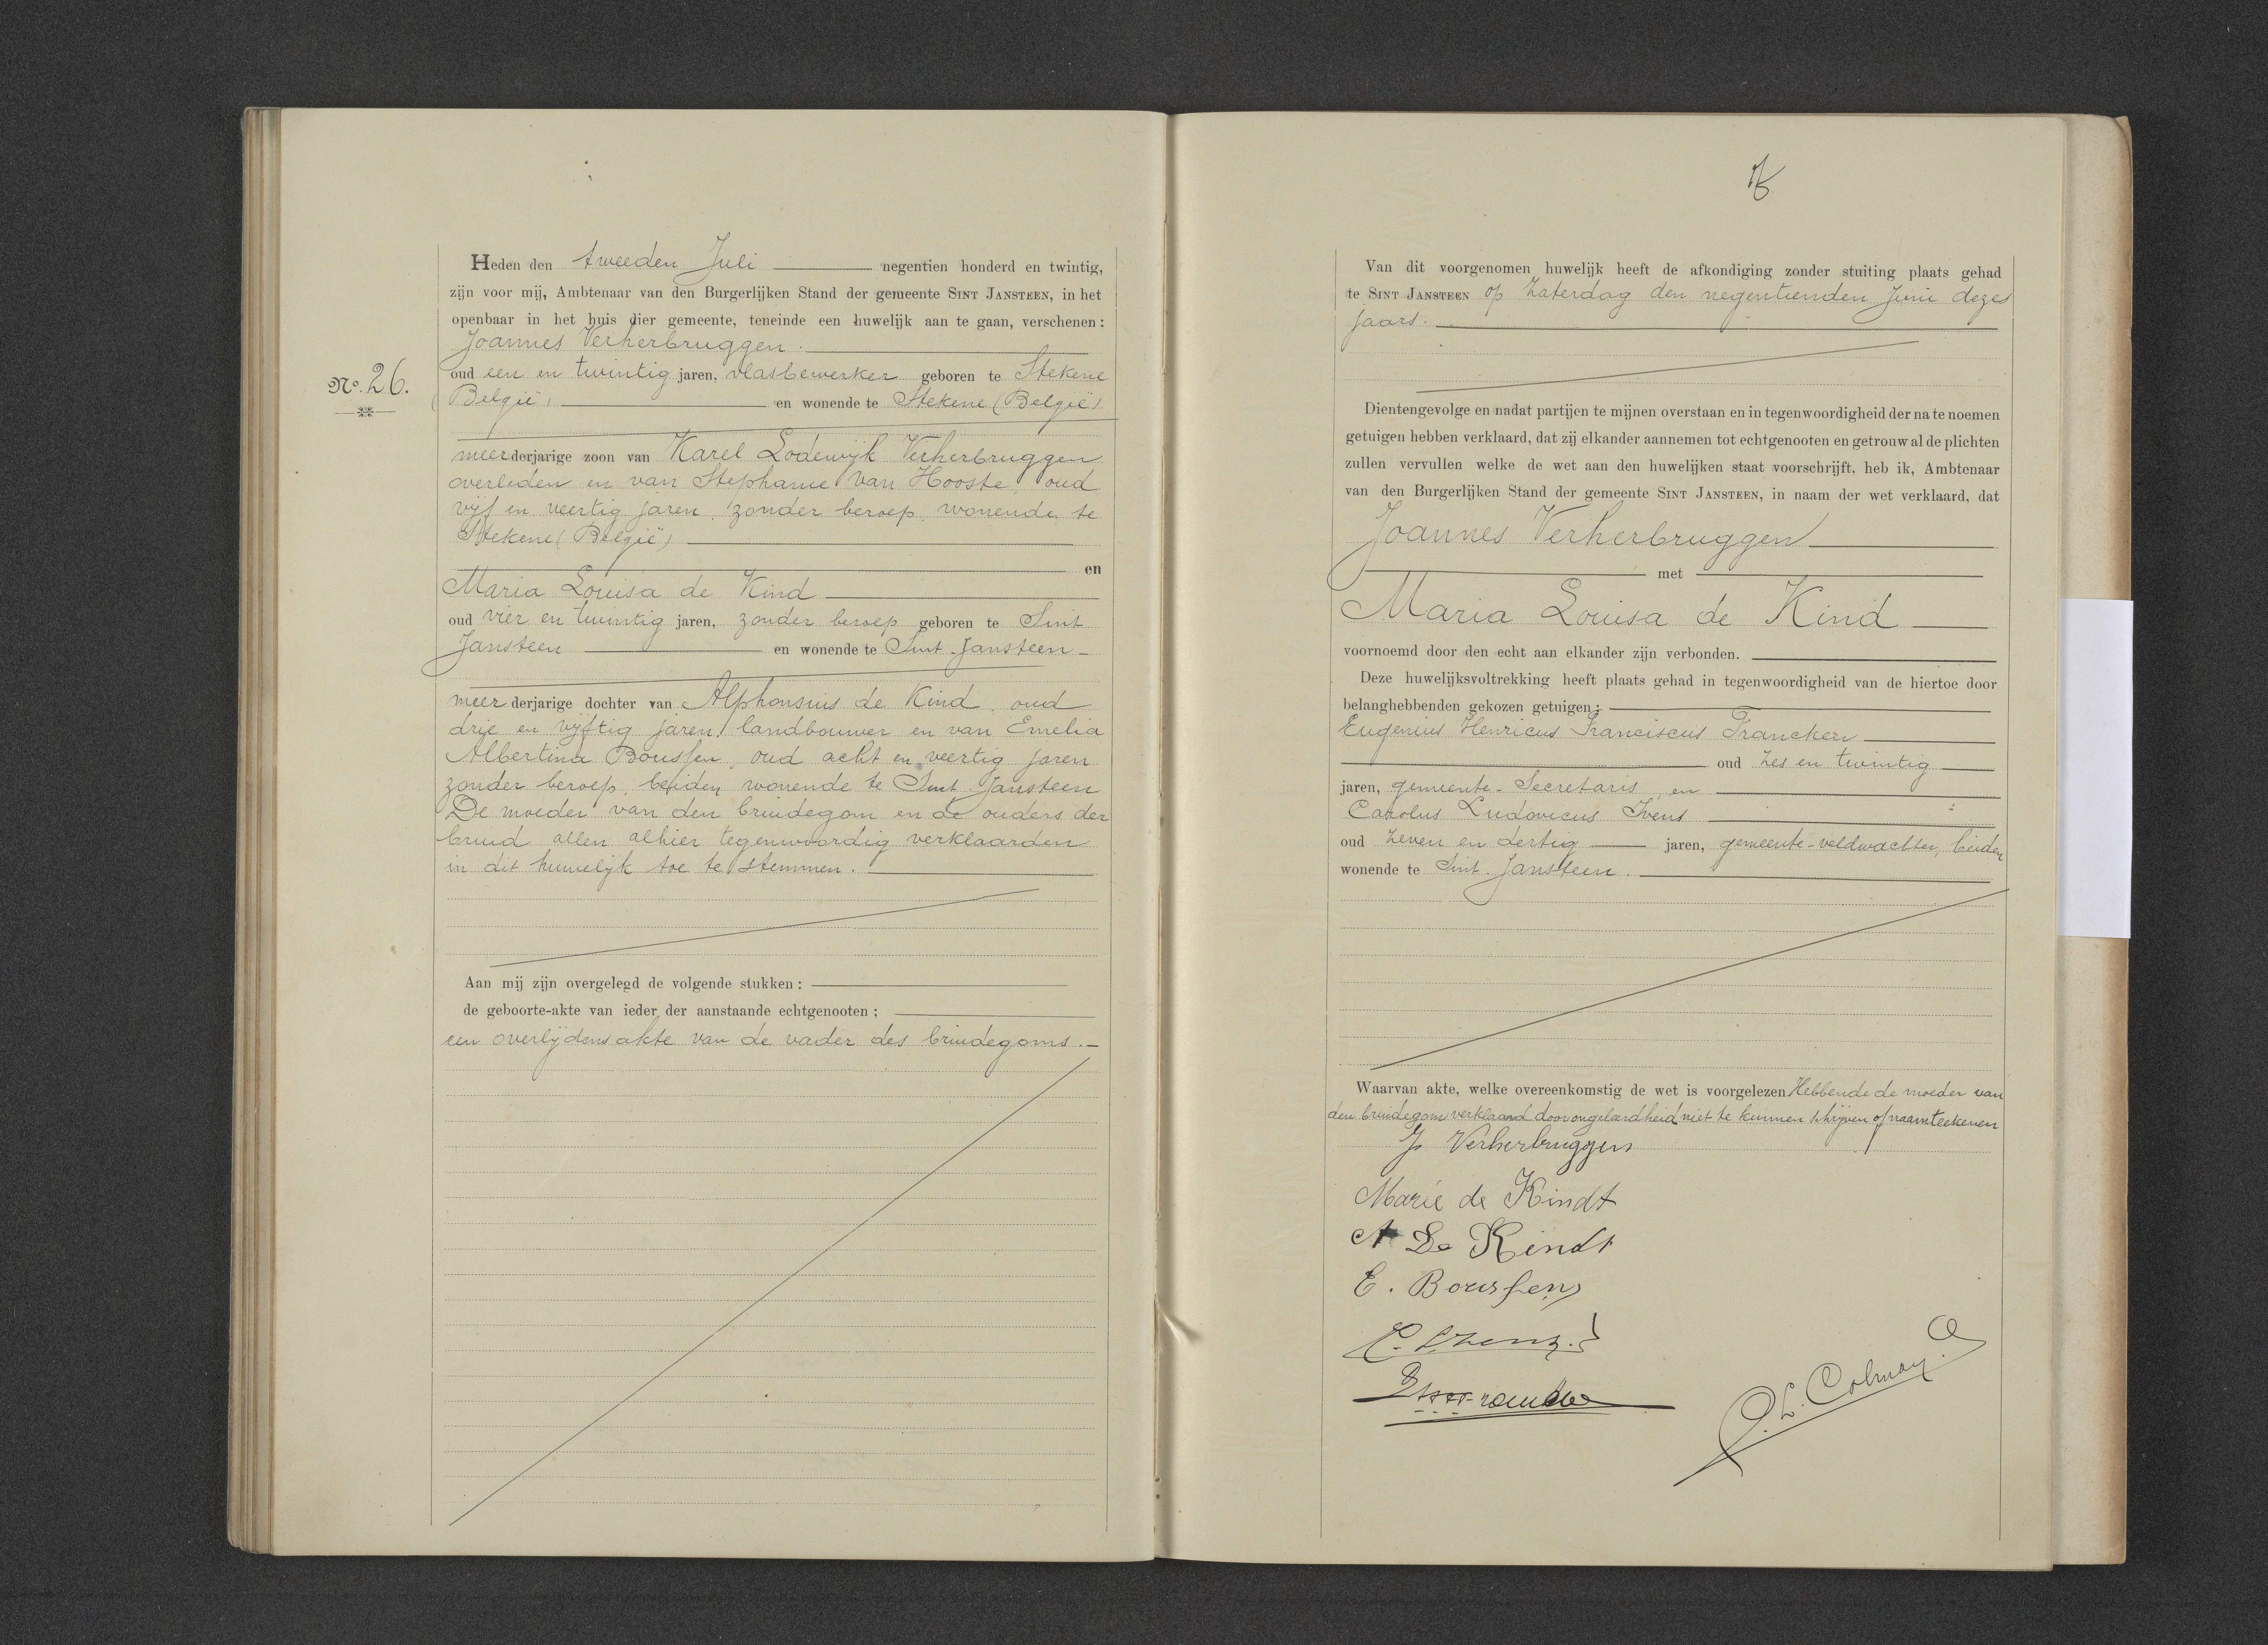 Heden den tweeden Juli negentien honderd en twintig,
zijn voor mij, Ambtenaar van den Burgerlijken Stand der gemeente SINT JANSTEEN, in het
openbaar in het huis dier gemeente, teneinde een huwelijk aan te gaan, verschenen:
Joannes Verherbruggen.
No. 26.
oud een en twintig jaren, vlasbewerker geboren te Stekene
(België) en wonende te Stekene (België)
meerderjarige zoon van Karel Lodewijk Verherbruggen
overleden en van Stephanie Van Hooste, oud
vijf en veertig jaren, zonder beroep, wonende te
Stekene (België)
en
Maria Louisa de Kind
oud vier en twintig jaren, zonder beroep geboren te Sint
Jansteen en wonende te Sint-Jansteen
meerderjarige dochter van Alphonsius de Kind, oud
drie en vijftig jaren, landbouwer en van Emelia
Albertina Boussen, oud acht en veertig jaren
zonder beroep, beiden wonende te Sint Jansteen
De moeder van den bruidegom en de ouders der
bruid allen alhier tegenwoordig verklaarden
in dit huwelijk toe te stemmen.
Aan mij zijn overgelegd de volgende stukken:
de geboorte-akte van ieder der aanstaande echtgenooten;
een overlijdensakte van de vader des bruidegoms.
Van dit voorgenomen huwelijk heeft de afkondiging zonder stuiting plaats gehad
te SINT JANSTEEN op Zaterdag den negentienden Juni dezes
jaars.
Dientengevolge en nadat partijen te mijnen overstaan en in tegenwoordigheid der na te noemen
getuigen hebben verklaard, dat zij elkander aannemen tot echtgenooten en getrouw al de plichten
zullen vervullen welke de wet aan den huwelijken staat voorschrijft, heb ik, Ambtenaar
van den Burgerlijken Stand der gemeente SINT JANSTEEN, in naam der wet verklaard, dat
Joannes Verherbruggen
met
Maria Louisa de Kind
voornoemd door den echt aan elkander zijn verbonden.
Deze huwelijksvoltrekking heeft plaats gehad in tegenwoordigheid van de hiertoe door
belanghebbenden gekozen getuigen:
Eugenius Henricus Franciscus Francken
oud zes en twintig
jaren, gemeente-Secretaris, en
Carolus Ludovicus Ivens
oud zeven en dertig jaren, gemeente-veldwachter, beiden
wonende te Sint-Jansteen.
Waarvan akte, welke overeenkomstig de wet is voorgelezen Hebbende de moeder van
den bruidegom verklaard door ongeleerdheid niet te kunnen schrijven of naamteekenen
J. Verherbruggen
Marie de Kindt
A De Kindt
E. Boussen